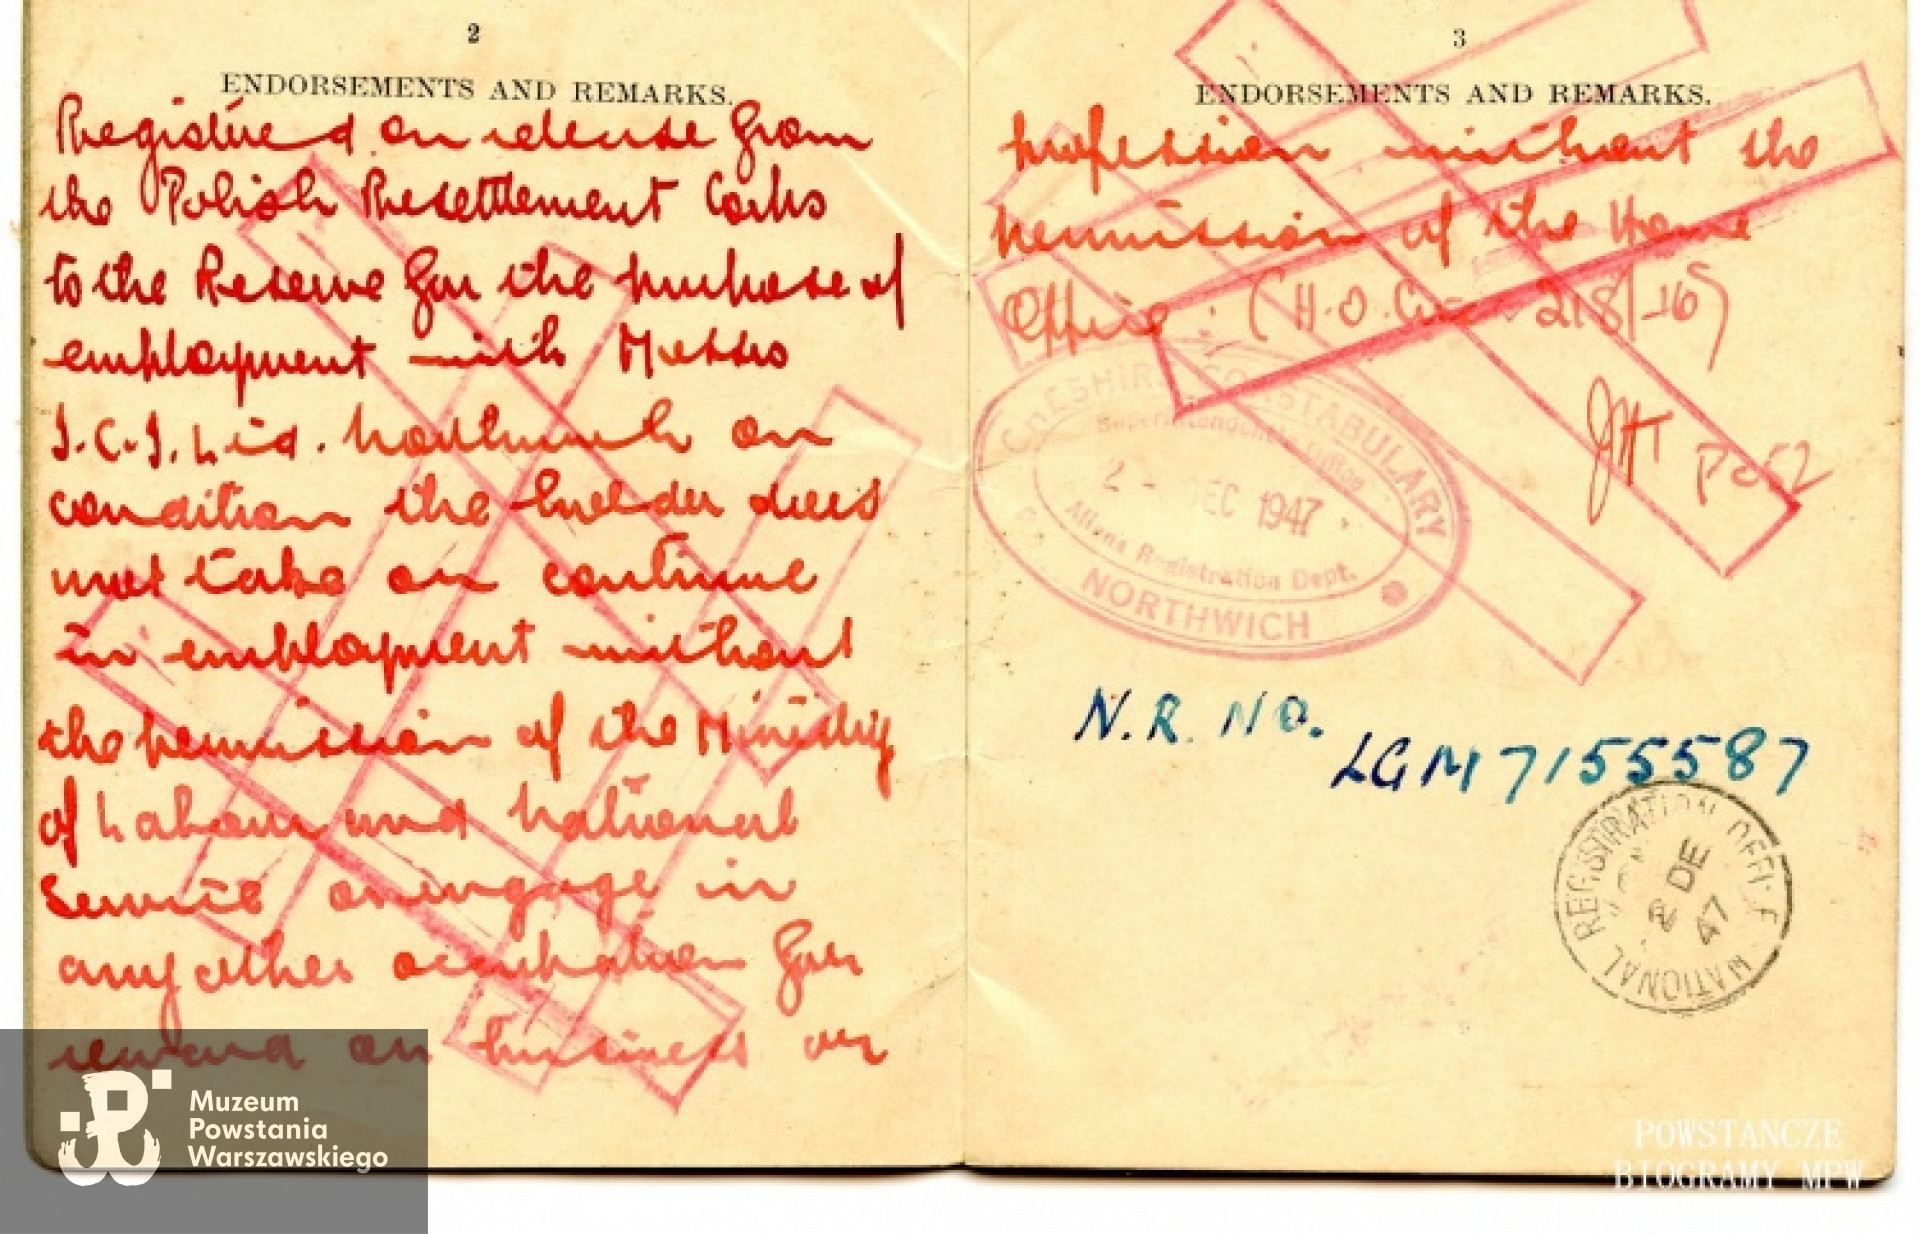 2
ENDORSEMENTS AND REMARKS.
Registered on release from
the Polish Resettlement Corps
to the Reserve for the purpose of
employment with Messrs
I.C.I. Ltd. Northwich on
condition the holder does
not take or continue
in employment without
the permission of the Ministry
of Labour and National
Service or engage in
any other occupation for
reward or business or
3
ENDORSEMENTS AND REMARKS.
profession without the
permission of the Home
Office. (H.O. Circ. 218/)
CHESHIRE CONSTABULARY
Superintendent's Office
2 - DEC 1947
Aliens Registration Dept.
NORTHWICH
N.R. NO.
LGM7155587
NATIONAL REGISTRATION OFFICE
2 DE
47
Muzeum
Powstania
Warszawskiego
POWSTAŃCZE
BIOGRAMY MPW